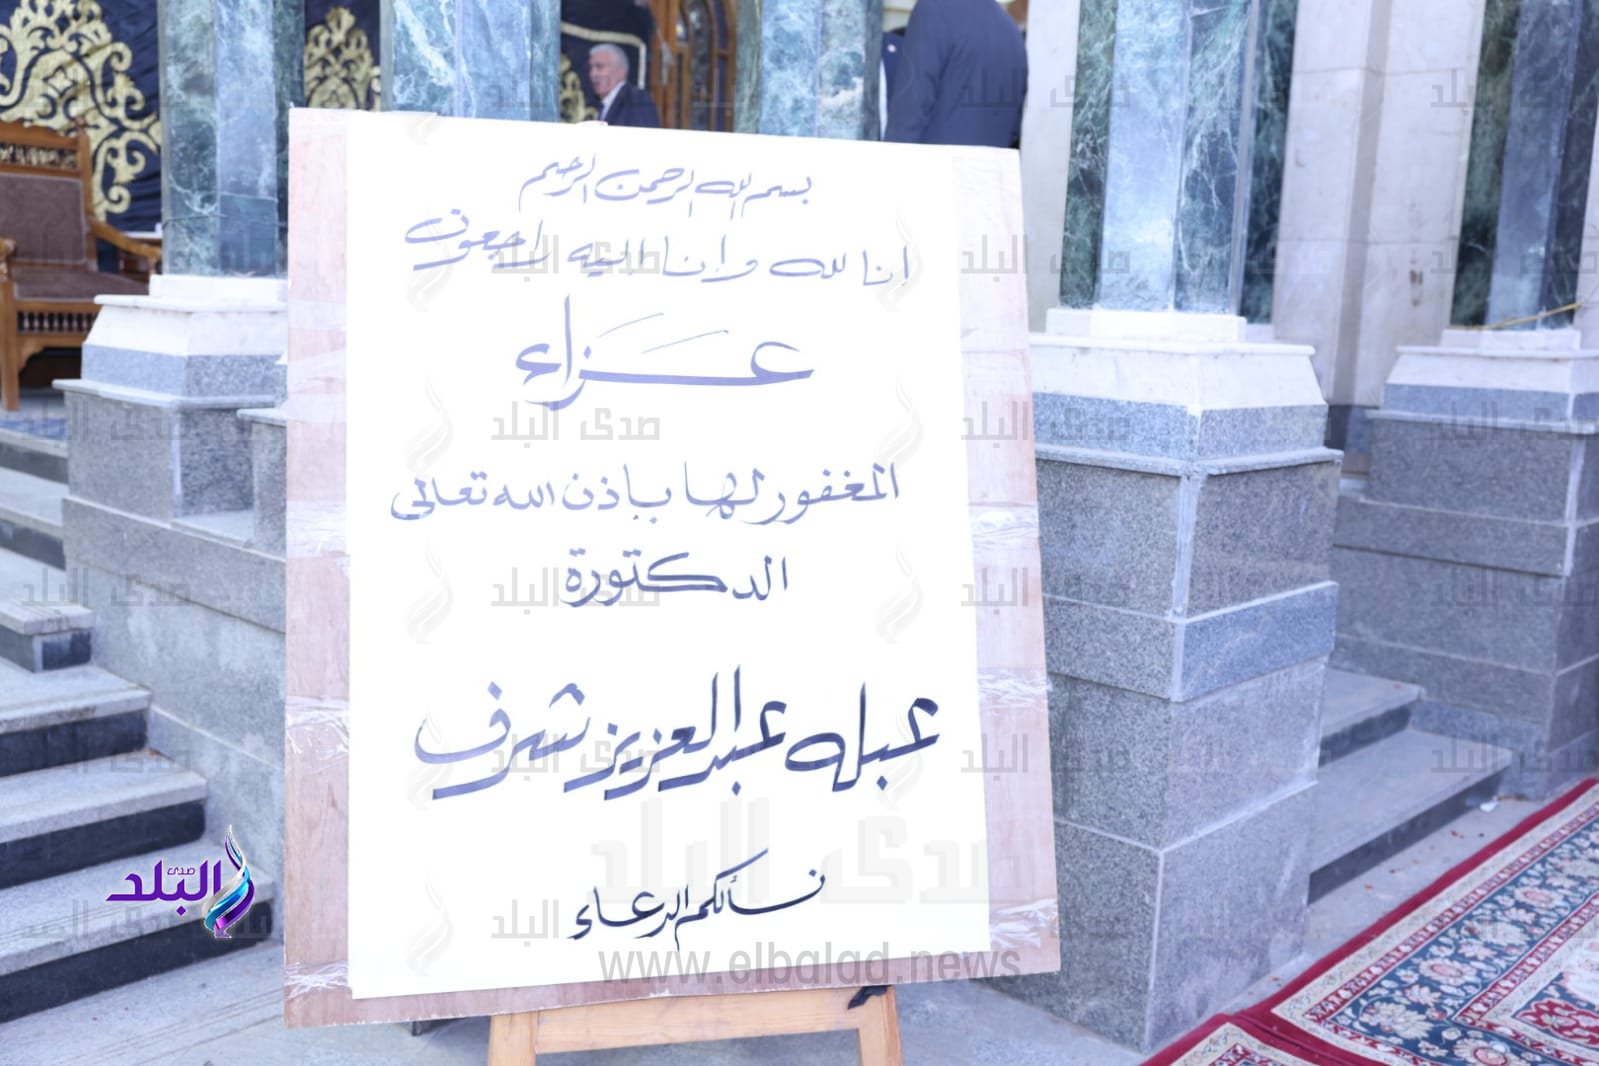 بسم الله الرحمن الرحيم
انا لله وإنا اليه راجعون
عزاء
المغفور لها بإذن الله تعالى
الدكتورة
عبله عبد العزيز شرف
نسألكم الدعاء
صدى البلد
www.elbalad.news